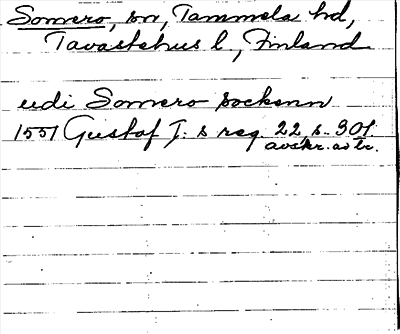 Somero, sn, Tammela hd,
Tavastehus l., Finland
udi Somero sockenn
1551 Gustaf I:s reg 22, s. 301
avskr. av br.